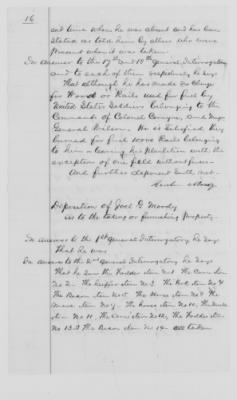 16
and time when he was absent and has been
stated as told him by others who were
present when it was taken.
In answer to the 17th and 18th General Interrogatory
and to each of them respectively he says
That although he has made no charge
for Wood or Rails used for fuel by
United States Soldiers belonging to the
Commands of Colonel and
General Wilson. He is satisfied they
burned for fuel 1000 Rails belonging
to him leaving his plantation with the
exception of one field without fences
And further deponent saith not.
Deposition of Joel G Moody
As to the taking or furnishing property.
In answer to the 1st General Interrogatory he says
That he was
In answer to the 2nd General Interrogatory he says
That he saw the Fodder item No 1. The Corn item
No 2. The item No 3. The item No 4
The Bacon item No 5. The Horse item No 8 The
item No 9. The item No 10. The
item No 11. The item No 12, The Fodder item
No 13 & The Bacon item No 14 all taken